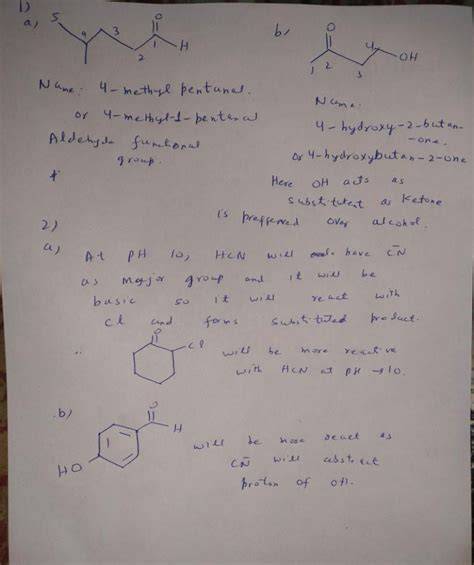 1)
a,
5
4
3
2
1
O
H
Name: 4-methyl pentanal.
or 4-methyl-1-pentanal
Aldehyde functional
group.
b,
O
1
2
3
4
OH
Name:
4-hydroxy-2-butan-
-one.
or 4-hydroxybutan-2-one
Here OH acts as
substitutent as Ketone
is preffered over alcohol.
2)
a)
At PH 10, HCN will have C̄N
as major group and it will be
basic so it will react with
Cl and forms substituted product.
O
Cl
will be more reactive
with HCN at PH → 10.
b)
O
H
HO
will be more react as
C̄N will abstract
proton of OH.